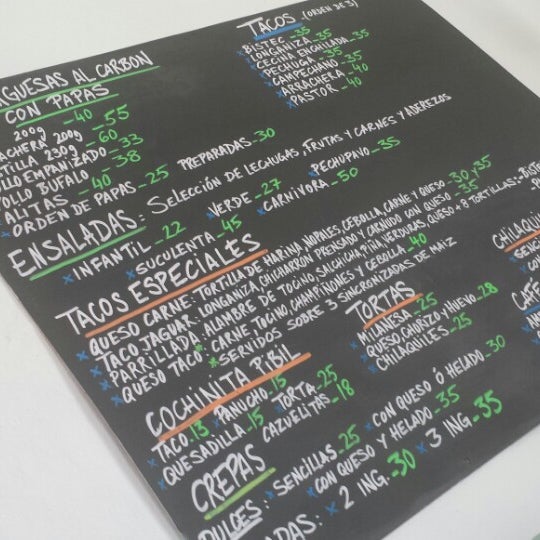 TACOS (ORDEN DE 3)
BISTEC -35
LONGANIZA -35
CECINA ENCHILADA -35
PECHUGA -35
CAMPECHANO -35
ARRACHERA -40
PASTOR -40
AL CARBON
CON PAPAS
200g -40
200g -55
230g -60
EMPANIZADO -33
BUFALO -38
ALITAS -40
ORDEN DE PAPAS -25 PREPARADAS -30
ENSALADAS: SELECCIÓN DE LECHUGAS, FRUTAS Y CARNES Y ADEREZOS
INFANTIL -22 VERDE -27 PECHUPAVO -35
SUCULENTA -45 CARNIVORA -50
TACOS ESPECIALES
QUESO CARNE: TORTILLA DE HARINA, NOPALES, CEBOLLA, CARNE Y QUESO -30 y 35
TACO JAGUAR: LONGANIZA, CHICHARRON PRENSADO Y CARNICO CON QUESO -35
PARRILLADA: ALAMBRE DE TOCINO, SALCHICHA, PIÑA, VERDURAS, QUESO + 8 TORTILLAS:
QUESO TACO: CARNE, TOCINO, CHAMPIÑONES Y CEBOLLA 40
*SERVIDOS SOBRE 3 SINCRONIZADAS DE MAIZ
COCHINITA PIBIL
TACO -13 PANUCHO -15
QUESADILLA -15 TORTA -25
CAZUELITAS -18
TORTAS
MILANESA -25
QUESO, CHORIZO Y HUEVO -28
CHILAQUILES -25
CREPAS
DULCES: SENCILLAS -25 CON QUESO Ó HELADO -30
CON QUESO Y HELADO -35
2 ING. -30 3 ING -35